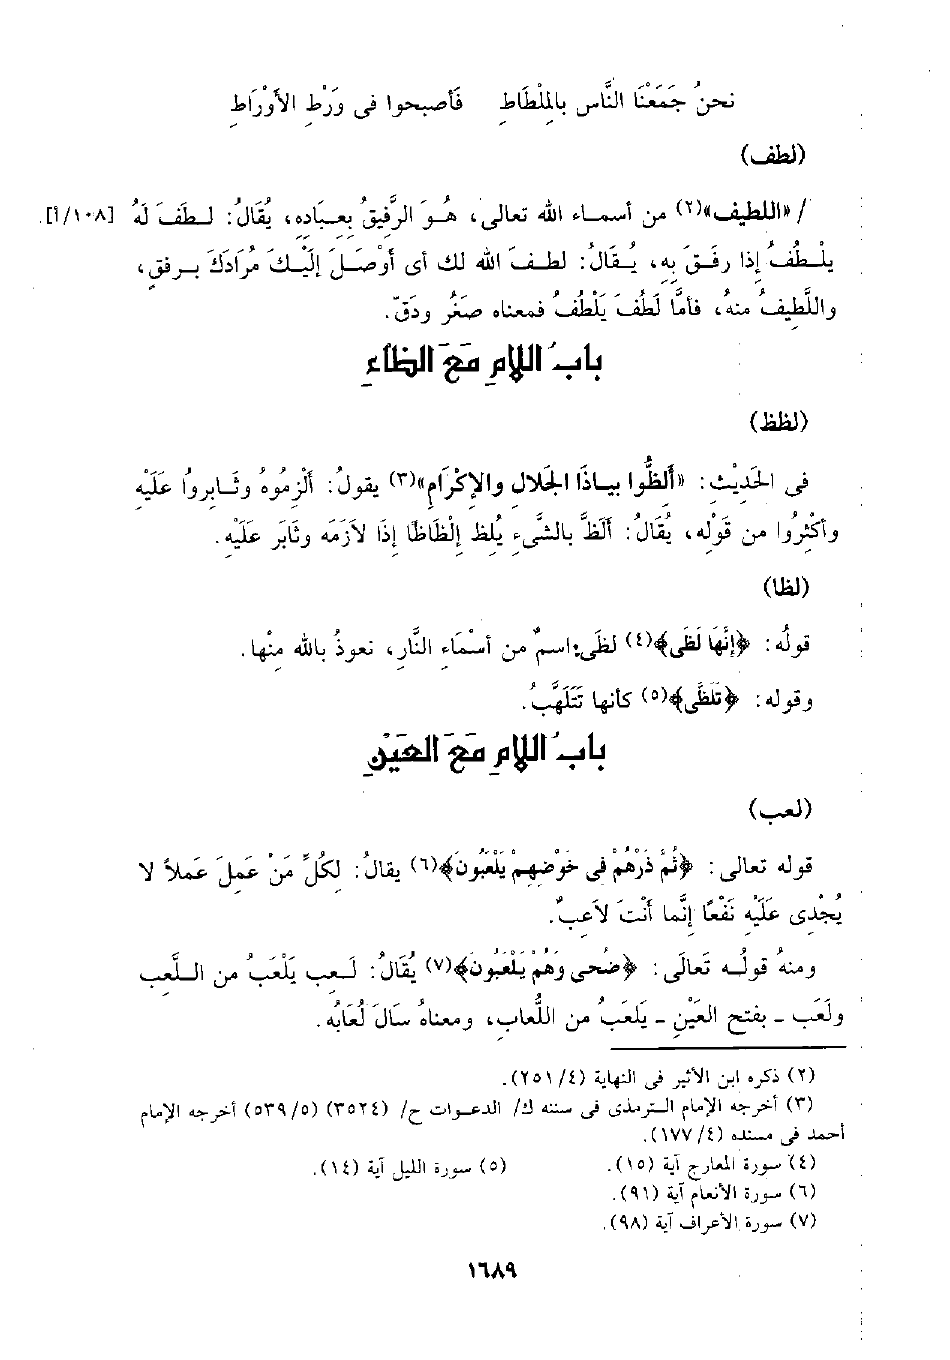 نحنُ جَمَعْنَا النَّاس بالِملْطَاطِ فَأصبحوا فى وَرْطِ الأَوْرَاطِ
(لطف)
/ «اللطيف»(٢) من أسماء الله تعالى، هُوَ الرَّفِيقُ بِعِبَادِهِ، يُقَالُ: لَطَفَ لَهُ [١٠٨/أ].
يَلْطُفُ إذا رفَقَ بِهِ، يُقَالُ: لطفَ الله لك أى أَوْصَلَ إلَيْكَ مُرَادَكَ بِرفقٍ،
واللَّطِيفُ منهُ، فأمَّا لَطُفَ يَلْطُفُ فمعناه صَغُر ودَقّ.
بابُ اللامِ مَعَ الظاءِ
(لظظ)
فى الحَدِيْثِ: «أَلظُّوا بيَاذَا الجَلالِ والإِكْرَامِ»(٣) يقولُ: ألْزِمُوهُ وثَابِروُا عَلَيْهِ
وأَكْثِرُوا من قَوْلِه، يُقَالُ: أَلَظَّ بالشَّىءِ يُلظ إلْظَاظًا إذَا لاَزَمَه وثَابَر عَلَيْهِ.
(لظا)
قولُه: ﴿إنَّهَا لَظَى﴾(٤) لظَى: اسمٌ من أسْمَاءِ النَّارِ، نعوذُ بالله مِنْها.
وقوله: ﴿تَلَظَّى﴾(٥) كأنها تَتَلَهَّبُ.
بابُ اللامِ مَعَ العَيْنِ
(لعب)
قوله تعالى: ﴿ثُمَّ ذَرْهُمْ فى خَوْضِهِمْ يَلْعَبُونَ﴾(٦) يقالُ: لِكُلِّ مَنْ عَمِلَ عَملاً لا
يُجْدِى عَلَيْهِ نَفْعًا إنَّما أَنْتَ لاَعِبٌ.
ومنهُ قولُه تَعَالَى: ﴿ضُحى وَهُمْ يَلْعَبُونَ﴾(٧) يُقَالُ: لَعِب يَلْعَبُ من اللَّعِب
ولَعَب - بفتح العَيْنِ - يَلعَبُ من اللُّعاب، ومعناهُ سَالَ لُعَابُه.
(٢) ذكره ابن الأثير فى النهاية (٢٥١/٤).
(٣) أخرجه الإمام الترمذى فى سننه ك/ الدعوات ح/ (٣٥٢٤) (٥٣٩/٥) أخرجه الإمام
أحمد فى مسنده (١٧٧/٤).
(٤) سورة المعارج آية (١٥). (٥) سورة الليل آية (١٤).
(٦) سورة الأنعام آية (٩١).
(٧) سورة الأعراف آية (٩٨).
١٦٨٩